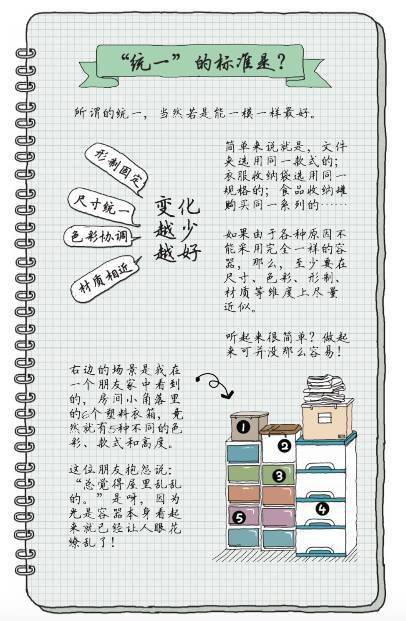 “统一”的标准是？
所谓的统一，当然若是能一模一样最好。
形制固定
尺寸统一
色彩协调
材质相近
变化
越少
越好
简单来说就是，文件
夹选用同一款式的；
衣服收纳袋选用同一
规格的；食品收纳罐
购买同一系列的……
如果由于各种原因不
能采用完全一样的容
器，那么，至少要在
尺寸、色彩、形制、
材质等维度上尽量
近似。
听起来很简单？做起
来可并没那么容易！
右边的场景是我在
一个朋友家中看到
的，房间小角落里
的6个塑料衣箱，竟
然就有5种不同的色
彩、款式和高度。
这位朋友抱怨说：
“总觉得屋里乱乱
的。”是呀，因为
光是容器本身看起
来就已经让人眼花
缭乱了！
1
2
3
4
5